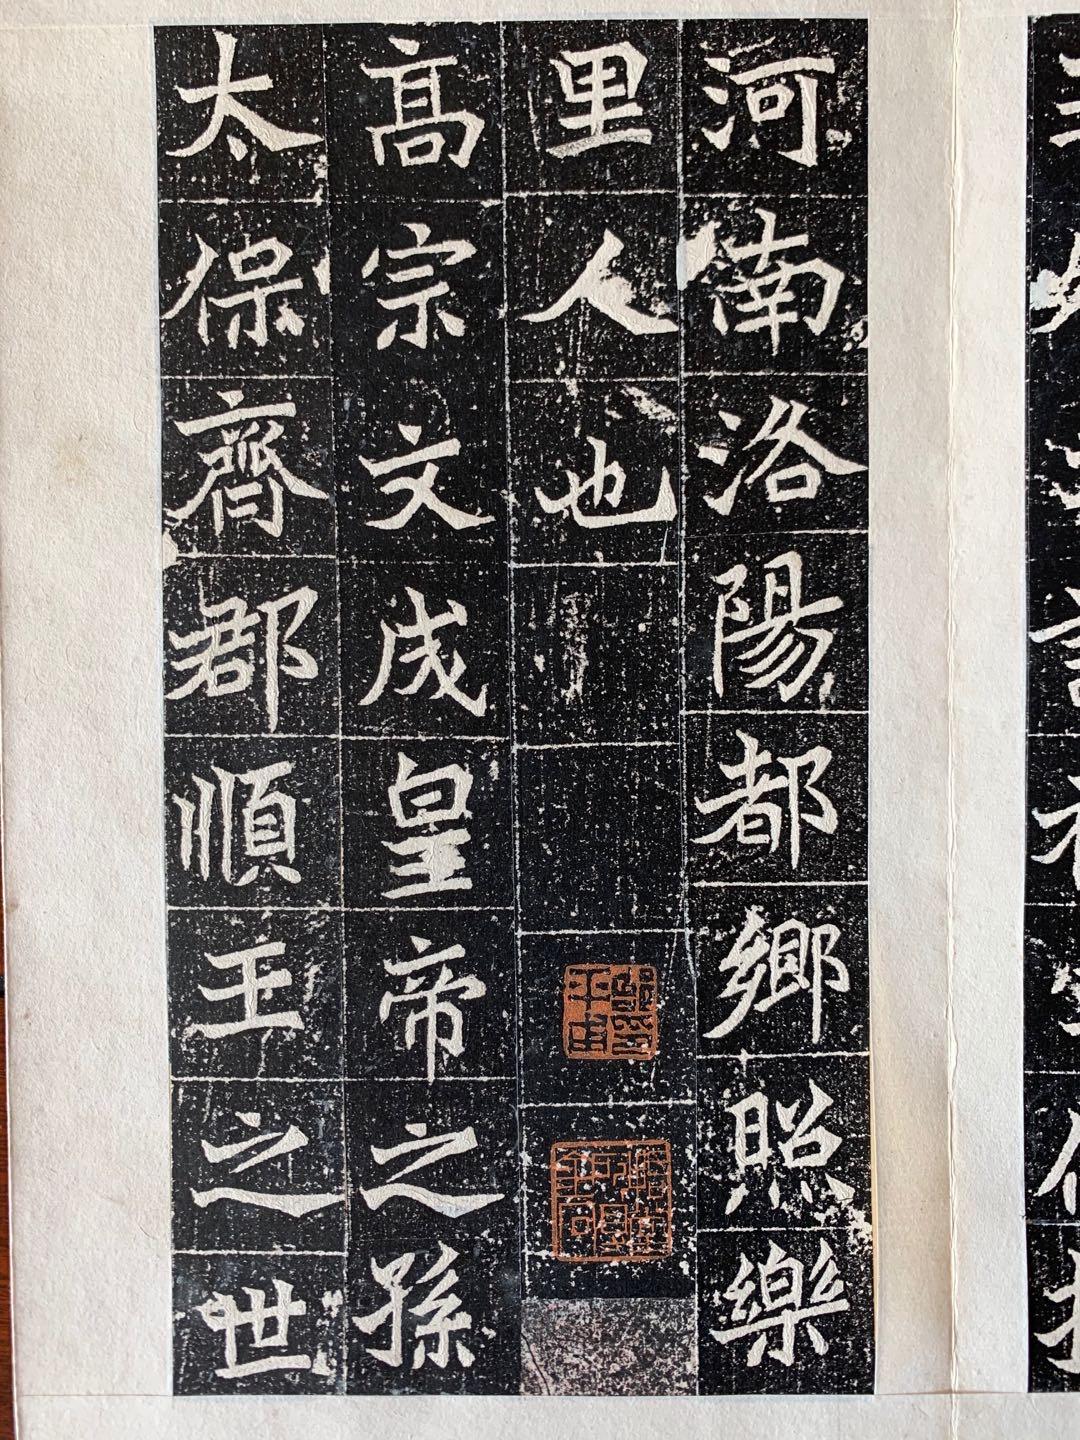 河南洛陽都鄉照樂
里人也
高宗文成皇帝之孫
太保齊郡順王之世